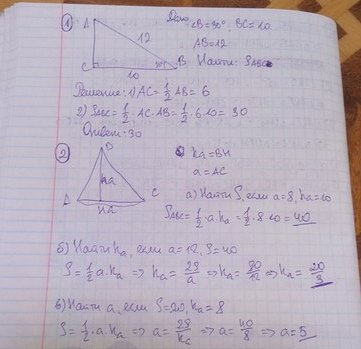 ① Дано ∠B=30°, BC=10
AB=12
Найти: SABC
A
12
C
10
30°
B
Решение: 1) AC = 1/2 AB = 6
2) SABC = 1/2 · AC · AB = 1/2 · 6 · 10 = 30
Ответ: 30
② ha = BH
a = AC
B
ha
A
C
а) Найти S, если a=8, ha=10
SABC = 1/2 · a · ha = 1/2 · 8 · 10 = 40
б) Найти ha, если a=12, S=40
S = 1/2 a · ha => ha = 2S/a => ha = 80/12 => ha = 20/3
в) Найти a, если S=20, ha=8
S = 1/2 · a · ha => a = 2S/ha => a = 40/8 => a = 5